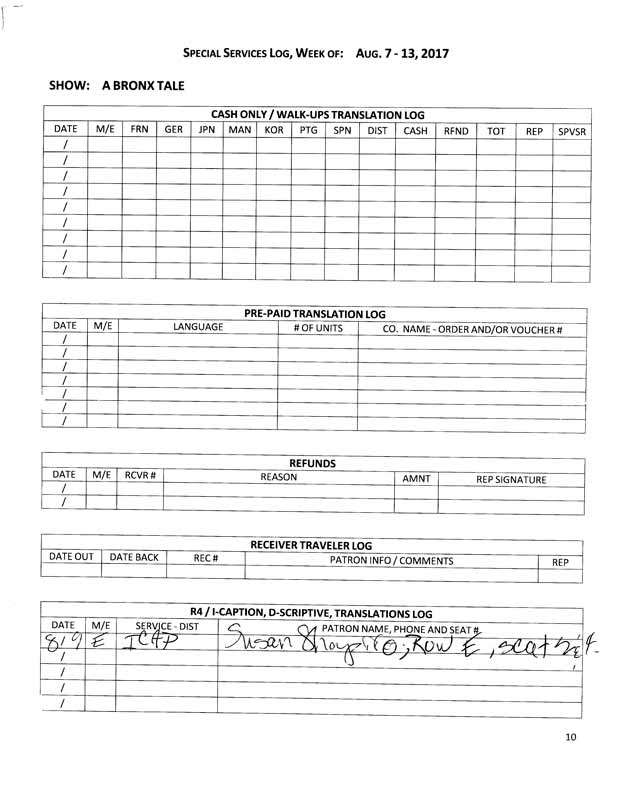 SPECIAL SERVICES LOG, WEEK OF: AUG. 7 - 13, 2017
SHOW: A BRONX TALE
CASH ONLY / WALK-UPS TRANSLATION LOG
DATE M/E FRN GER JPN MAN KOR PTG SPN DIST CASH RFND TOT REP SPVSR
/
/
/
/
/
/
/
/
/
PRE-PAID TRANSLATION LOG
DATE M/E LANGUAGE # OF UNITS CO. NAME - ORDER AND/OR VOUCHER #
/
/
/
/
/
/
/
REFUNDS
DATE M/E RCVR # REASON AMNT REP SIGNATURE
/
/
RECEIVER TRAVELER LOG
DATE OUT DATE BACK REC # PATRON INFO / COMMENTS REP
R4 / I-CAPTION, D-SCRIPTIVE, TRANSLATIONS LOG
DATE M/E SERVICE - DIST PATRON NAME, PHONE AND SEAT #
8/9 E ICAP Susan Shapiro, Row E, seat
/
/
/
10